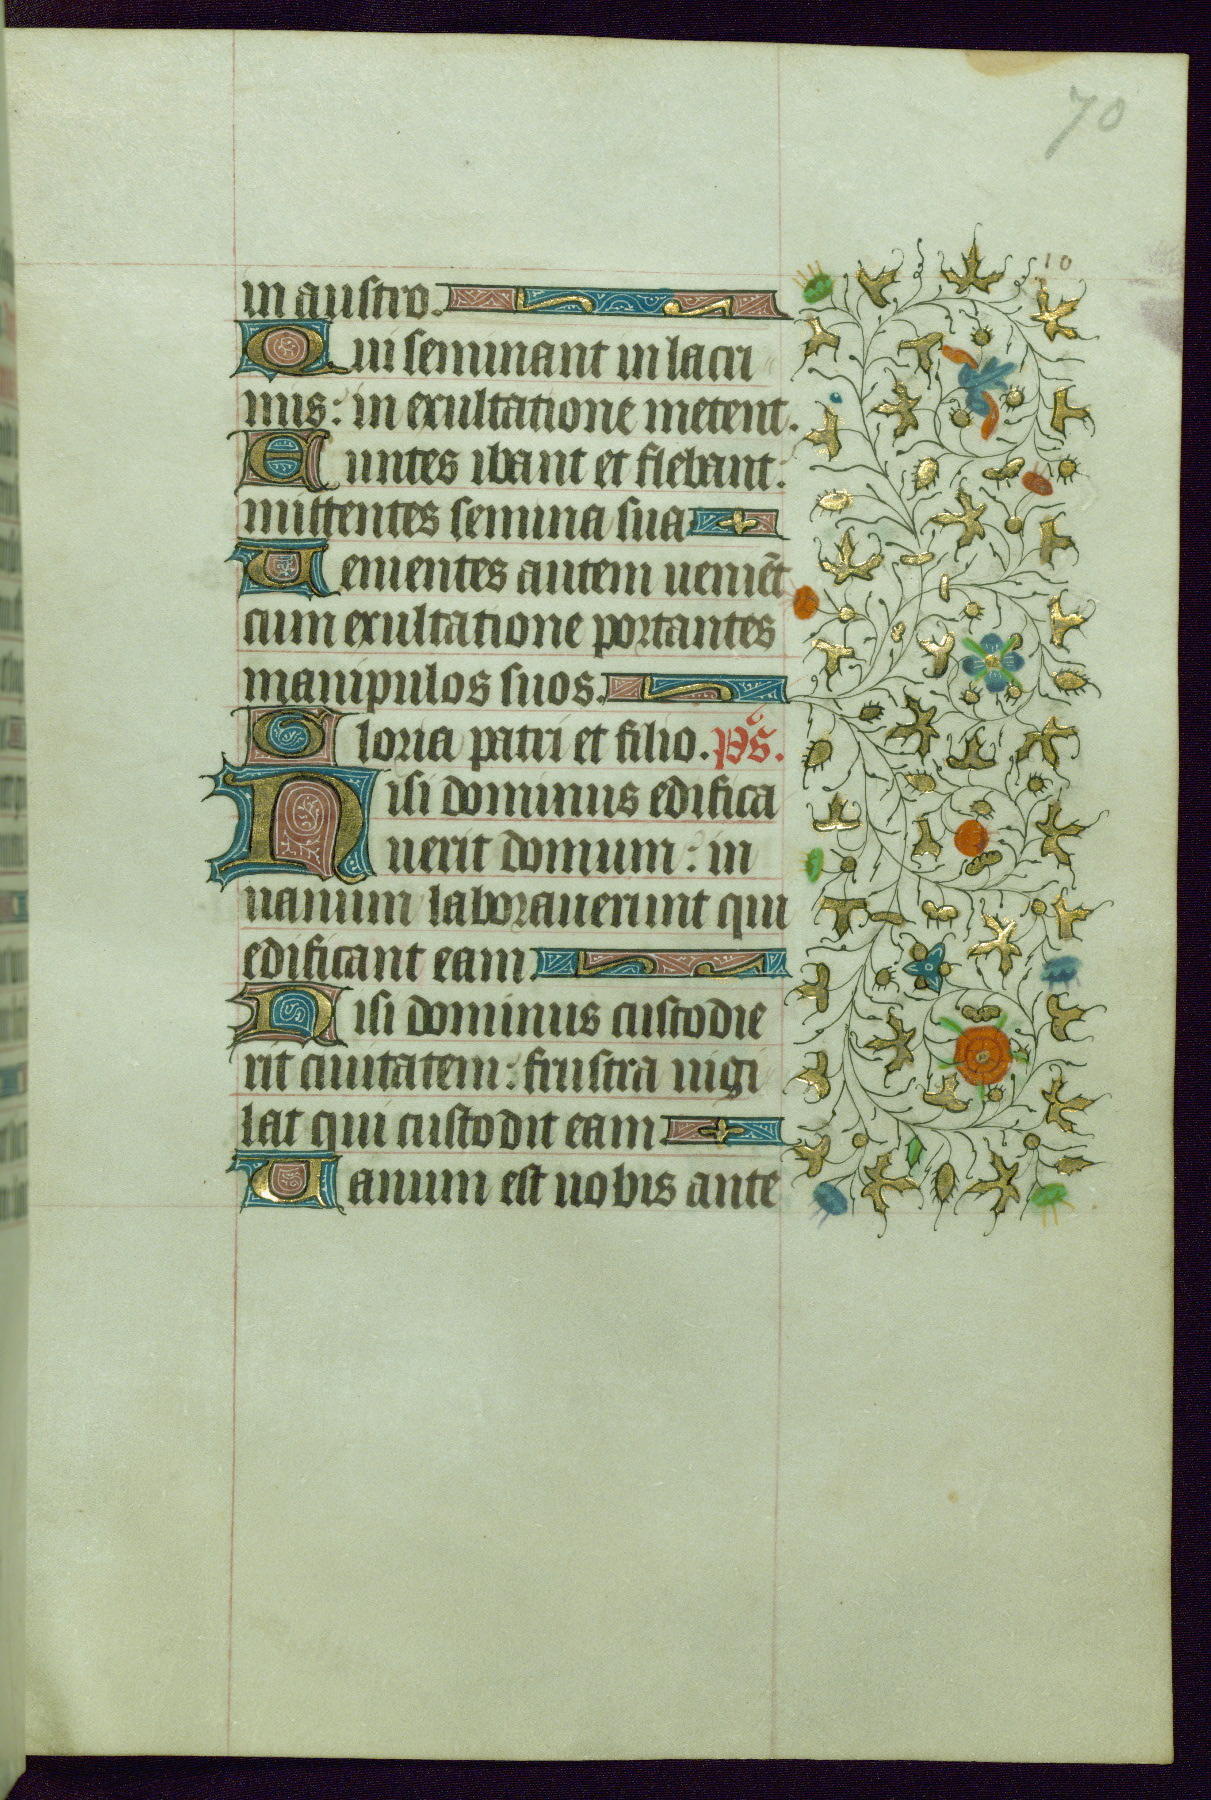 70
10
in austro.
Qui seminant in lacri
mis: in exultatione metent.
Euntes ibant et flebant:
mittentes semina sua
Uenientes autem ueniēt
cum exultatione portantes
manipulos suos.
Gloria patri et filio. p̄s.
Nisi dominus edifica
uerit domum: in
uanum laborauerunt qui
edificant eam.
Nisi dominus custodie
rit ciuitatem: frustra uigi
lat qui custodit eam.
Uanum est uobis ante